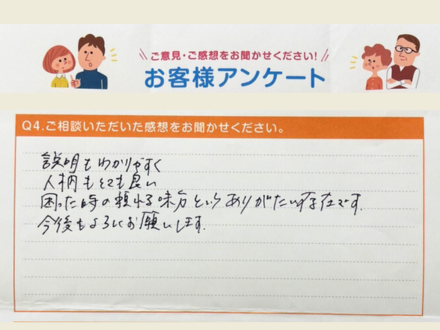 ご意見・ご感想をお聞かせください!
お客様アンケート
Q4.ご相談いただいた感想をお聞かせください。
説明もわかりやすく
人柄もとても良い
困った時の頼れる味方というありがたい存在です。
今後もよろしくお願いします。